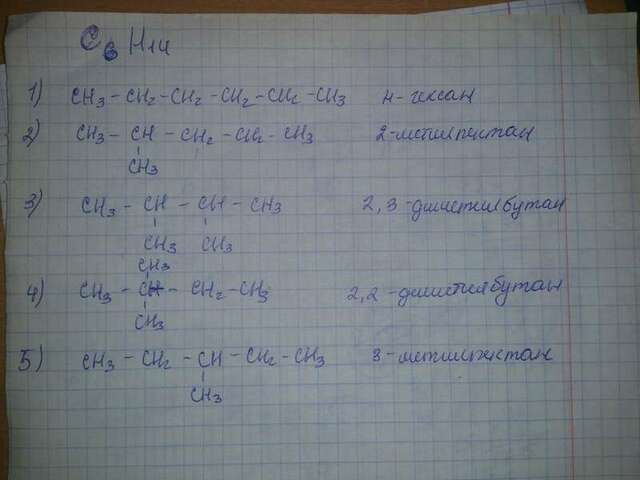 C₆H₁₄
1) CH₃ - CH₂ - CH₂ - CH₂ - CH₂ - CH₃ н-гексан
2) CH₃ - CH - CH₂ - CH₂ - CH₃ 2-метилпентан
CH₃
3) CH₃ - CH - CH - CH₃ 2,3-диметилбутан
CH₃ CH₃
CH₃
4) CH₃ - C - CH₂ - CH₃ 2,2-диметилбутан
CH₃
5) CH₃ - CH₂ - CH - CH₂ - CH₃ 3-метилпентан
CH₃